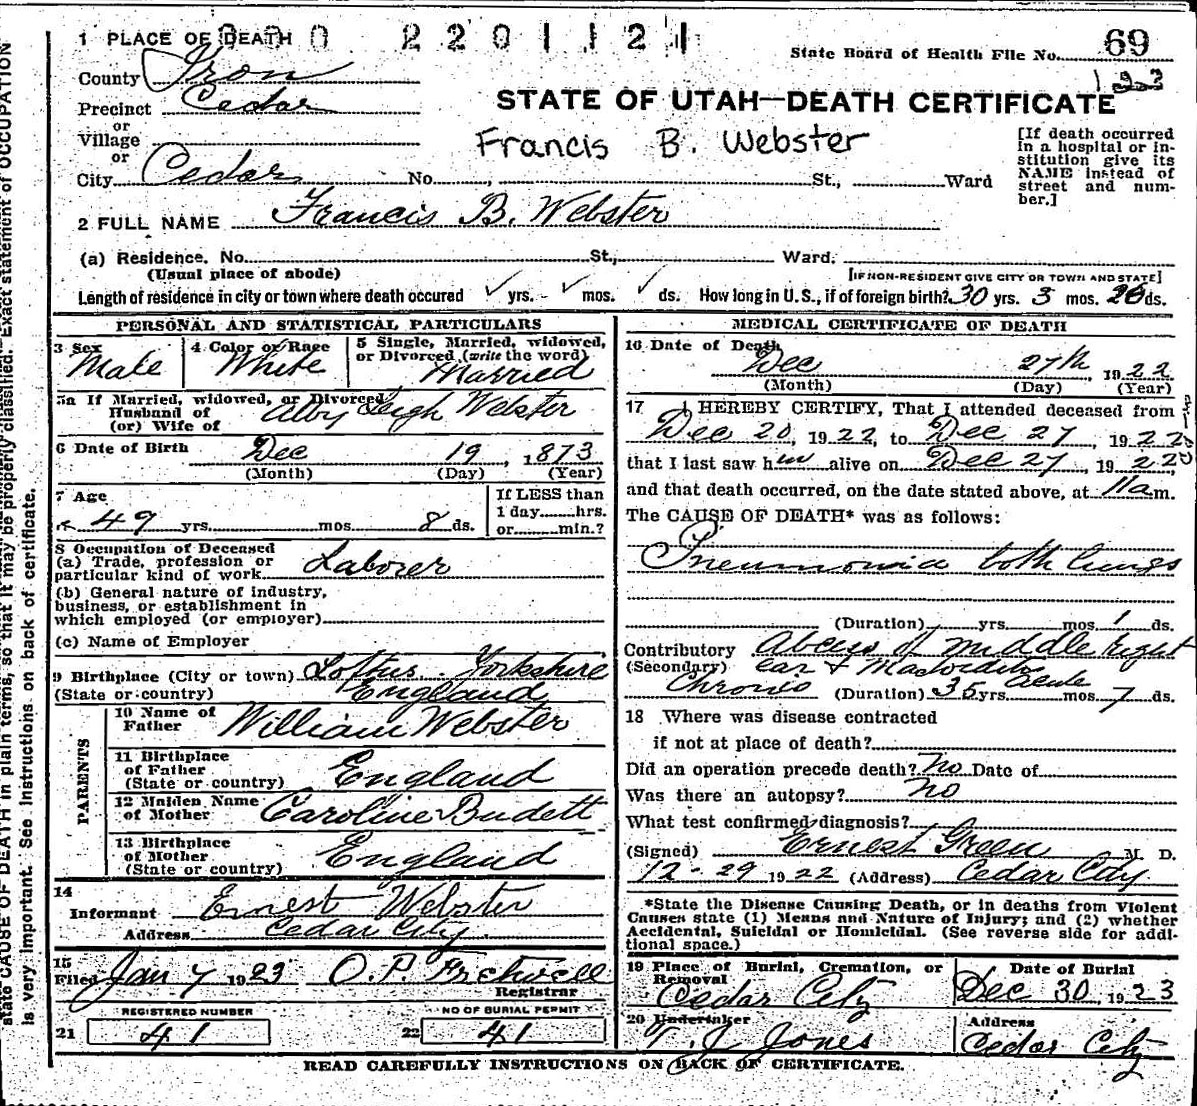 1 PLACE OF DEATH
2201121
State Board of Health File No. 69
County Iron
Precinct Cedar
or
Village
or
City Cedar No. , St., Ward
STATE OF UTAH—DEATH CERTIFICATE
Francis B. Webster
[If death occurred
in a hospital or in-
stitution give its
NAME instead of
street and num-
ber.]
2 FULL NAME Francis B. Webster
(a) Residence. No. St., Ward.
(Usual place of abode) [IF NON-RESIDENT GIVE CITY OR TOWN AND STATE]
Length of residence in city or town where death occured ✓ yrs. - ✓ mos. ✓ ds. How long in U. S., if of foreign birth? 30 yrs. 3 mos. 26 ds.
PERSONAL AND STATISTICAL PARTICULARS
3 Sex Male
4 Color or Race White
5 Single, Married, widowed,
or Divorced (write the word)
Married
5a If Married, widowed, or Divorced
Husband of
(or) Wife of Leigh Webster
6 Date of Birth Dec 19, 1873
(Month) (Day) (Year)
7 Age
49 yrs. mos. 8 ds.
If LESS than
1 day hrs.
or min.?
8 Occupation of Deceased
(a) Trade, profession or
particular kind of work Laborer
(b) General nature of industry,
business, or establishment in
which employed (or employer)
(c) Name of Employer
9 Birthplace (City or town) Loftus Yorkshire
(State or country) England
PARENTS
10 Name of
Father William Webster
11 Birthplace
of Father
(State or country) England
12 Maiden Name
of Mother Caroline Budett
13 Birthplace
of Mother
(State or country) England
14
Informant Ernest Webster
Address Cedar City
15
Filed Jan 7 1923 O. P. Fretwell
Registrar
REGISTERED NUMBER
21 41
NO OF BURIAL PERMIT
22 41
MEDICAL CERTIFICATE OF DEATH
16 Date of Death
Dec 27th 1922
(Month) (Day) (Year)
17 I HEREBY CERTIFY, That I attended deceased from
Dec 20, 1922, to Dec 27, 1922
that I last saw him alive on Dec 27, 1922
and that death occurred, on the date stated above, at 11 a m.
The CAUSE OF DEATH* was as follows:
Pneumonia both lungs
(Duration) yrs. mos. 1 ds.
Contributory Abcess of middle right
(Secondary) ear & Mastoiditis
Chronic Acute
(Duration) 35 yrs. mos. 7 ds.
18 Where was disease contracted
if not at place of death?
Did an operation precede death? No Date of
Was there an autopsy? No
What test confirmed diagnosis?
(Signed) Ernest Green M. D.
12-29 1922 (Address) Cedar City
*State the Disease Causing Death, or in deaths from Violent
Causes state (1) Means and Nature of Injury; and (2) whether
Accidental, Suicidal or Homicidal. (See reverse side for addi-
tional space.)
19 Place of Burial, Cremation, or
Removal
Cedar City
Date of Burial
Dec 30, 1923
20 Undertaker
T. J. Jones
Address
Cedar City
READ CAREFULLY INSTRUCTIONS ON BACK OF CERTIFICATE.
state CAUSE OF DEATH in plain terms, so that it may be properly classified. Exact statement of OCCUPATION
is very important. See instructions on back of certificate.